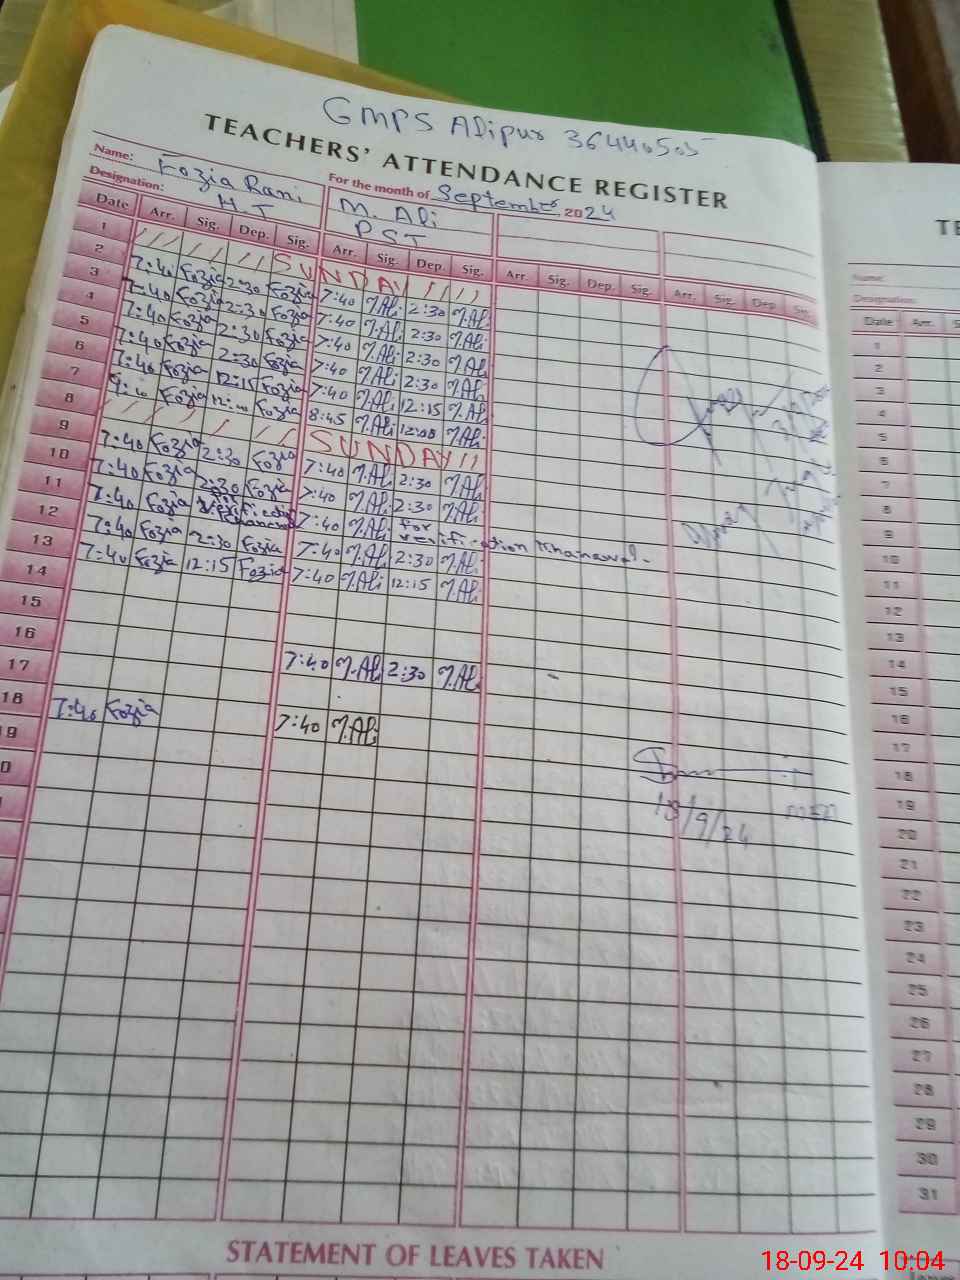 GMPS Alipur 36440505
TEACHERS' ATTENDANCE REGISTER
Name: Fozia Rani
For the month of September, 2024
Designation: H.T
M. Ali
PST
Date Arr. Sig. Dep. Sig. Arr. Sig. Dep. Sig. Arr. Sig. Dep. Sig. Arr. Sig. Dep. Sig.
1 SUNDAY
2 7:40 Fozia 2:30 Fozia 7:40 M.Ali 2:30 M.Ali
3 7:40 Fozia 2:30 Fozia 7:40 M.Ali 2:30 M.Ali
4 7:40 Fozia 2:30 Fozia 7:40 M.Ali 2:30 M.Ali
5 7:40 Fozia 2:30 Fozia 7:40 M.Ali 2:30 M.Ali
6 7:40 Fozia 12:15 Fozia 7:40 M.Ali 12:15 M.Ali
7 Fozia Fozia 8:45 M.Ali 12:00 M.Ali
8 SUNDAY
9 7:40 Fozia 2:30 Fozia 7:40 M.Ali 2:30 M.Ali
10 7:40 Fozia 2:30 Fozia 7:40 M.Ali 2:30 M.Ali
11 7:40 Fozia for verification Khanewal 7:40 M.Ali for verification Khanewal
12 7:40 Fozia 2:30 Fozia 7:40 M.Ali 2:30 M.Ali
13 7:40 Fozia 12:15 Fozia 7:40 M.Ali 12:15 M.Ali
14
15
16
17 7:40 M.Ali 2:30 M.Ali
18 7:40 Fozia 7:40 M.Ali
9
0
18/9/24
STATEMENT OF LEAVES TAKEN
TE
Name:
Designation:
Date Arr. S
1
2
3
4
5
6
7
8
9
10
11
12
13
14
15
16
17
18
19
20
21
22
23
24
25
26
27
28
29
30
31
18-09-24 10:04